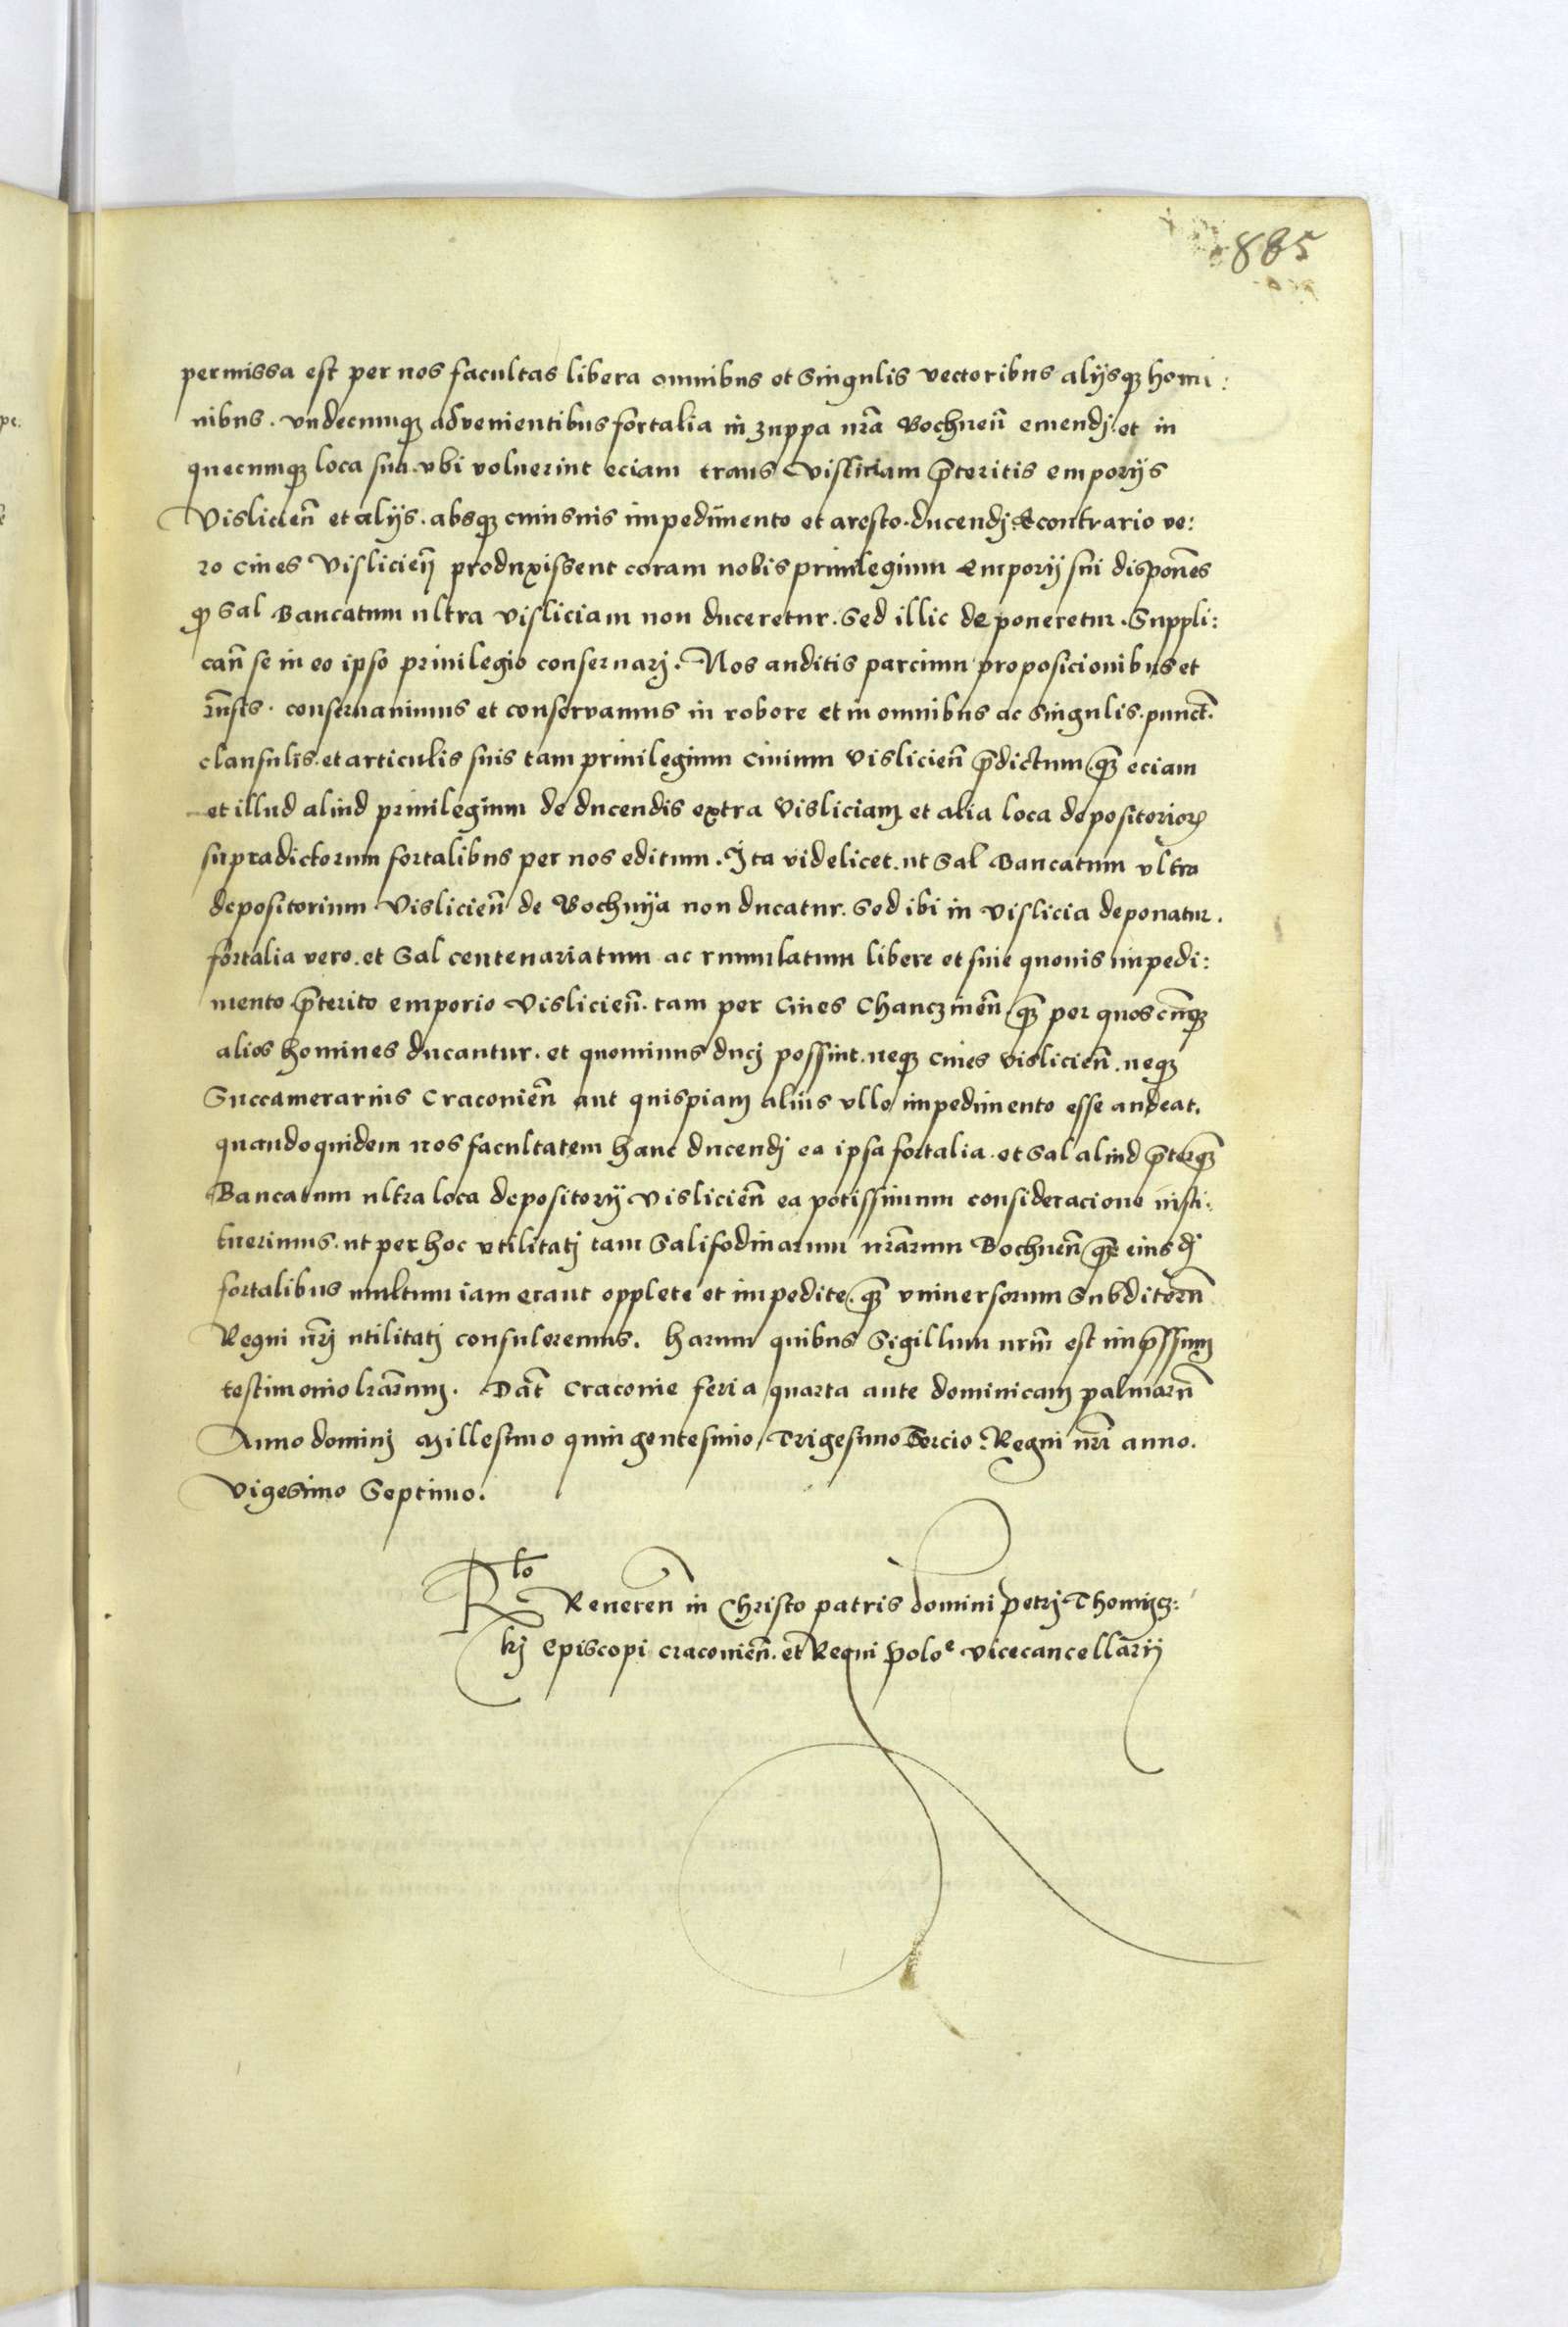 885
permissa est per nos facultas libera omnibus et singulis vectoribus alijsqꝫ homi:
nibus. vndecumqꝫ advenientibus fortalia in zuppa nr̃a Bochnen̄ emendj et in
quecumqꝫ loca sua vbi voluerint eciam trans Visliciam p̄teritis emporijs
Vislicien̄ et alijs. absqꝫ cuiusuis impedimento et aresto. ducendj Econtrario ve:
ro ciues Vislicien̄ produxissent coram nobis priuilegium emporij sui dispon̄es
ꝙ Sal Bancatum ultra visliciam non duceretur. Sed illic deponeretur. Suppli:
can̄ se in eo ipso priuilegio conseruarj. Nos auditis parcium proposicionibus et
rn̄sis. conseruauimus et conservamus in robore et in omnibus ac singulis. punct̄.
clausulis. et articulis suis tam priuilegium ciuium Vislicien̄ p̄dictum qꝫ eciam
et illud aliud priuilegium de ducendis extra Visliciam et alia loca depositorioꝝ
supradictorum fortalibus per nos editum. Ita videlicet. ut Sal Bancatum vltra
depositorium Vislicien̄ de Bochnija non ducatur. Sed ibi in vislicia deponatur.
fortalia vero. et Sal centenariatum ac rumulatum libere et sine quouis impedi:
mento p̄terito emporio Vislicien̄. tam per Ciues Chanczinen̄ qꝫ per quoscūqꝫ
alios homines ducantur. et quominus ducj possint. neqꝫ ciues vislicien̄. neqꝫ
Succamerarius Cracouien̄ aut quispiam alius vllo impedimento esse audeat.
quandoquidem nos facultatem hanc ducendj ea ipsa fortalia. et Sal aliud p̄terqꝫ
Bancatum ultra loca depositorij vislicien̄ ea potissimum consideracione insti:
tuerimus. ut per hoc vtilitatj tam Salifodinarum nr̃arum Bochnen̄ que eiusdj
fortalibus multum iam erant opplete et impedite. qꝫ vniuersorum Subditorū
Regni nr̃j utilitatj consuleremus. harum quibus Sigillum nrm̄ est imp̄ssum
testimonio lr̃arum. Dat̄ Cracouie feria quarta ante dominicam palmarū
Anno dominj Millesimo quingentesimo Trigesimo Tercio. Regni nr̃i anno.
vigesimo Septimo.
Rlo
Reueren̄ in Christo patris domini petrj Thomicz:
kj Episcopi cracouien̄. et Regni Poloe vicecancellarij